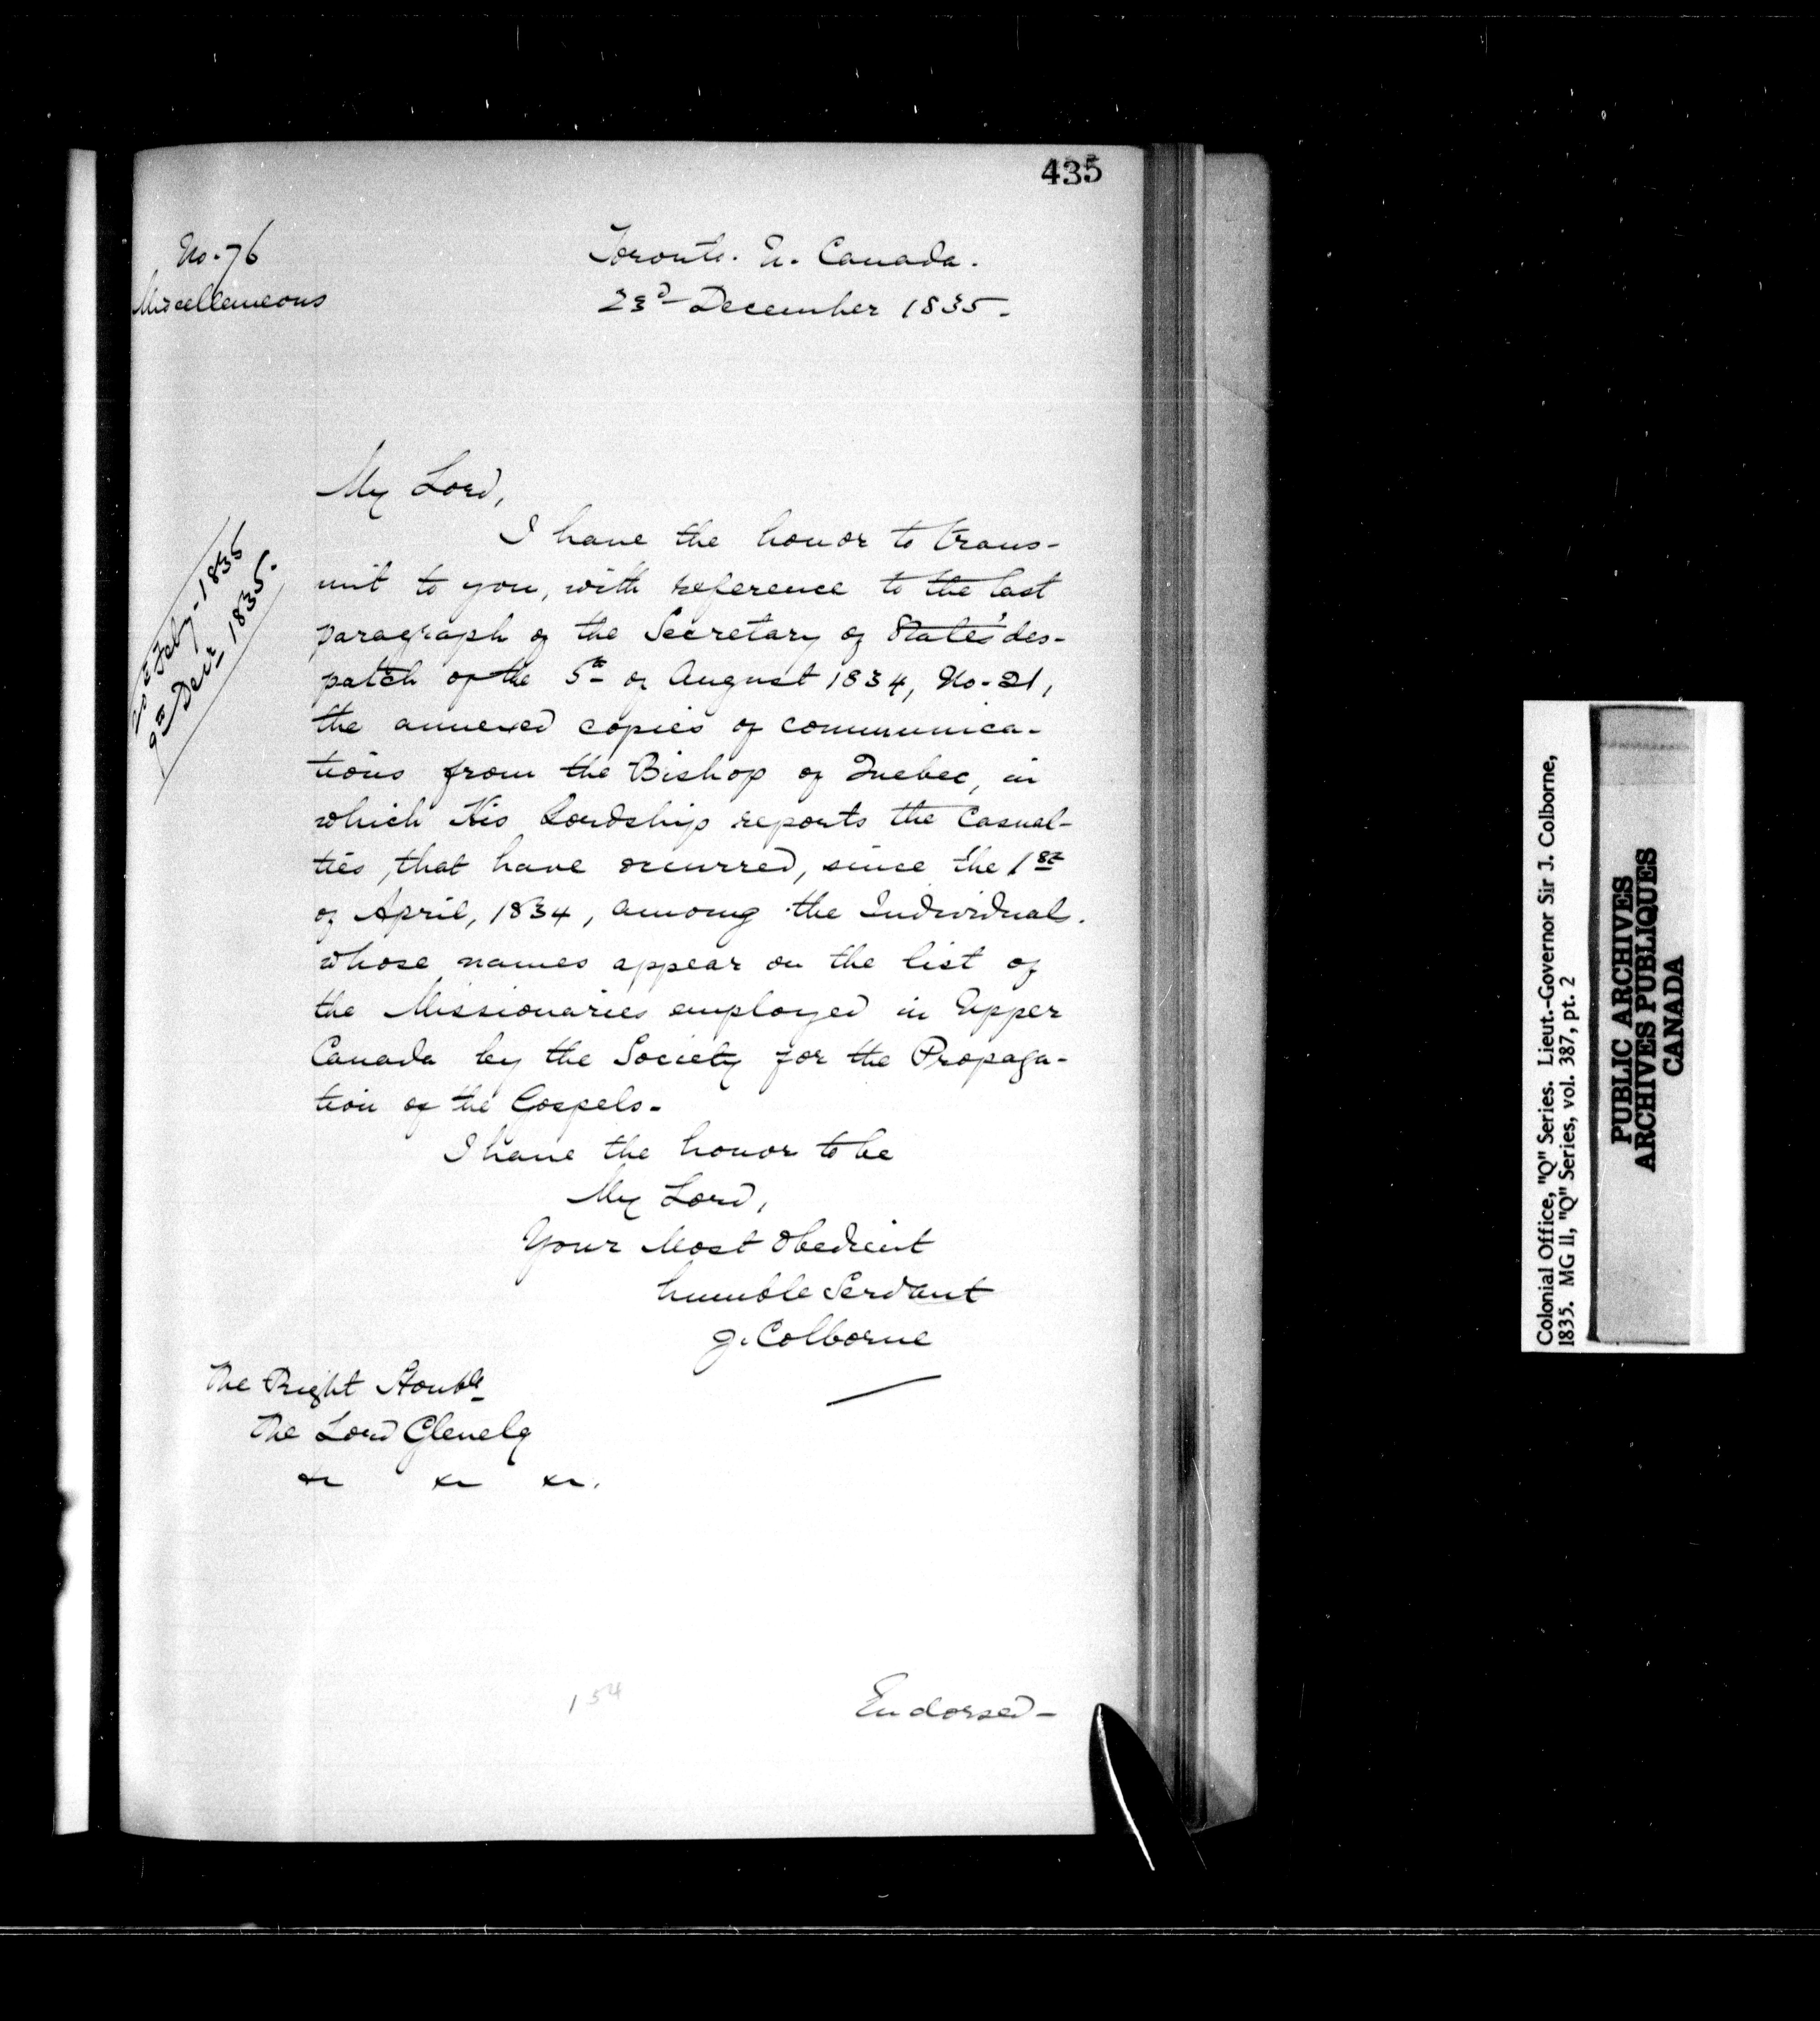 435
No. 76
Miscellaneous
Toronto. U. Canada.
23d December 1835.
My Lord,
I have the honor to trans-
mit to you, with reference to the last
paragraph of the Secretary of State's des-
patch of the 5th of August 1834, No. 21,
the annexed copies of communica-
tions from the Bishop of Quebec, in
which His Lordship reports the Casual-
ties, that have occurred, since the 1st
of April, 1834, among the Individuals.
whose names appear on the list of
the Missionaries employed in Upper
Canada by the Society for the Propaga-
tion of the Gospels.
Feby. 1835
9th Decr 1835.
I have the honor to be
My Lord,
Your Most Obedient
humble Servant
J. Colborne
The Right Honble
The Lord Glenelg
&c &c &c.
154
Endorsed-
Colonial Office, "Q" Series. Lieut.-Governor Sir J. Colborne,
1835. MG 11, "Q" Series, vol. 387, pt. 2
PUBLIC ARCHIVES
ARCHIVES PUBLIQUES
CANADA